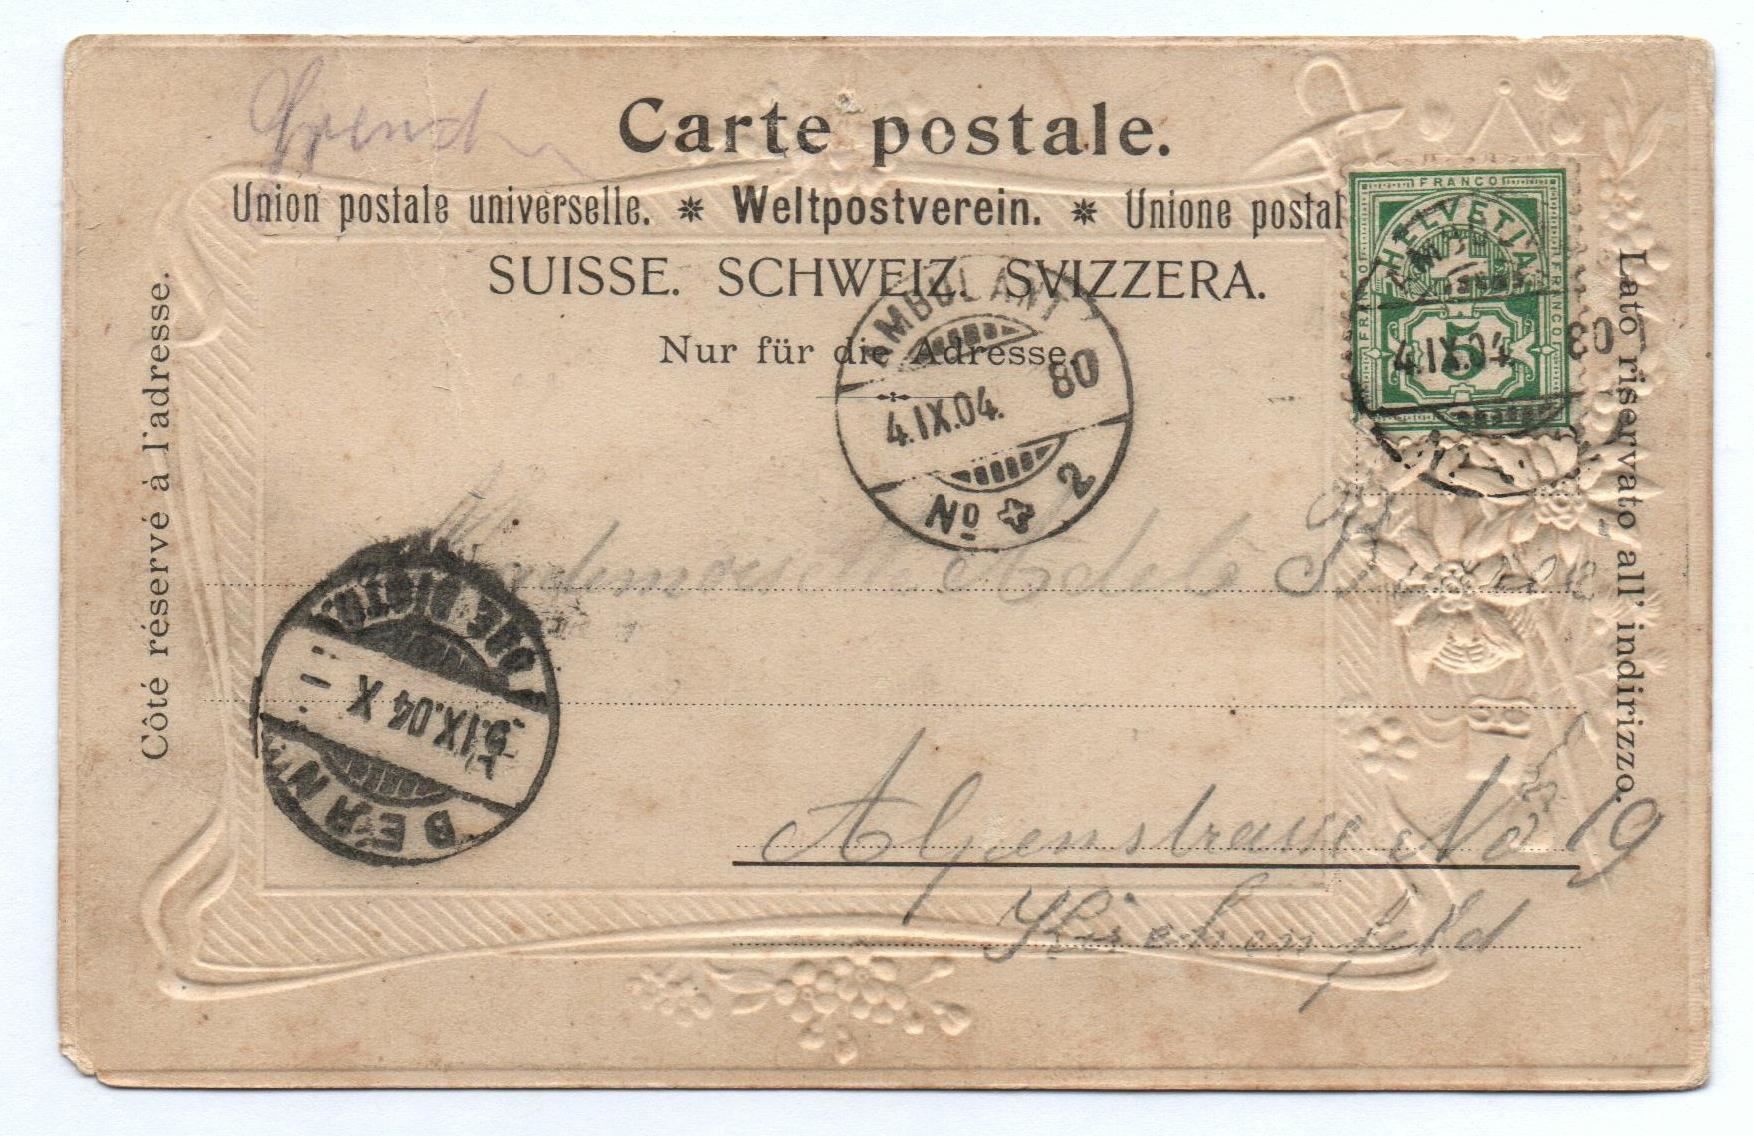 Carte postale.
Union postale universelle. * Weltpostverein. * Unione postal
SUISSE. SCHWEIZ. SVIZZERA.
Nur für die Adresse.
Côté réservé à l'adresse.
Lato riservato all' indirizzo.
FRANCO
FRANCO
FRANCO
HELVETIA
5
4.IX.04.
80
AMBULANT
4.IX.04. 80
No 2
BERN
5.IX.04 X
Mademoiselle Adele
Alpenstrasse No 19
Kirchenfeld